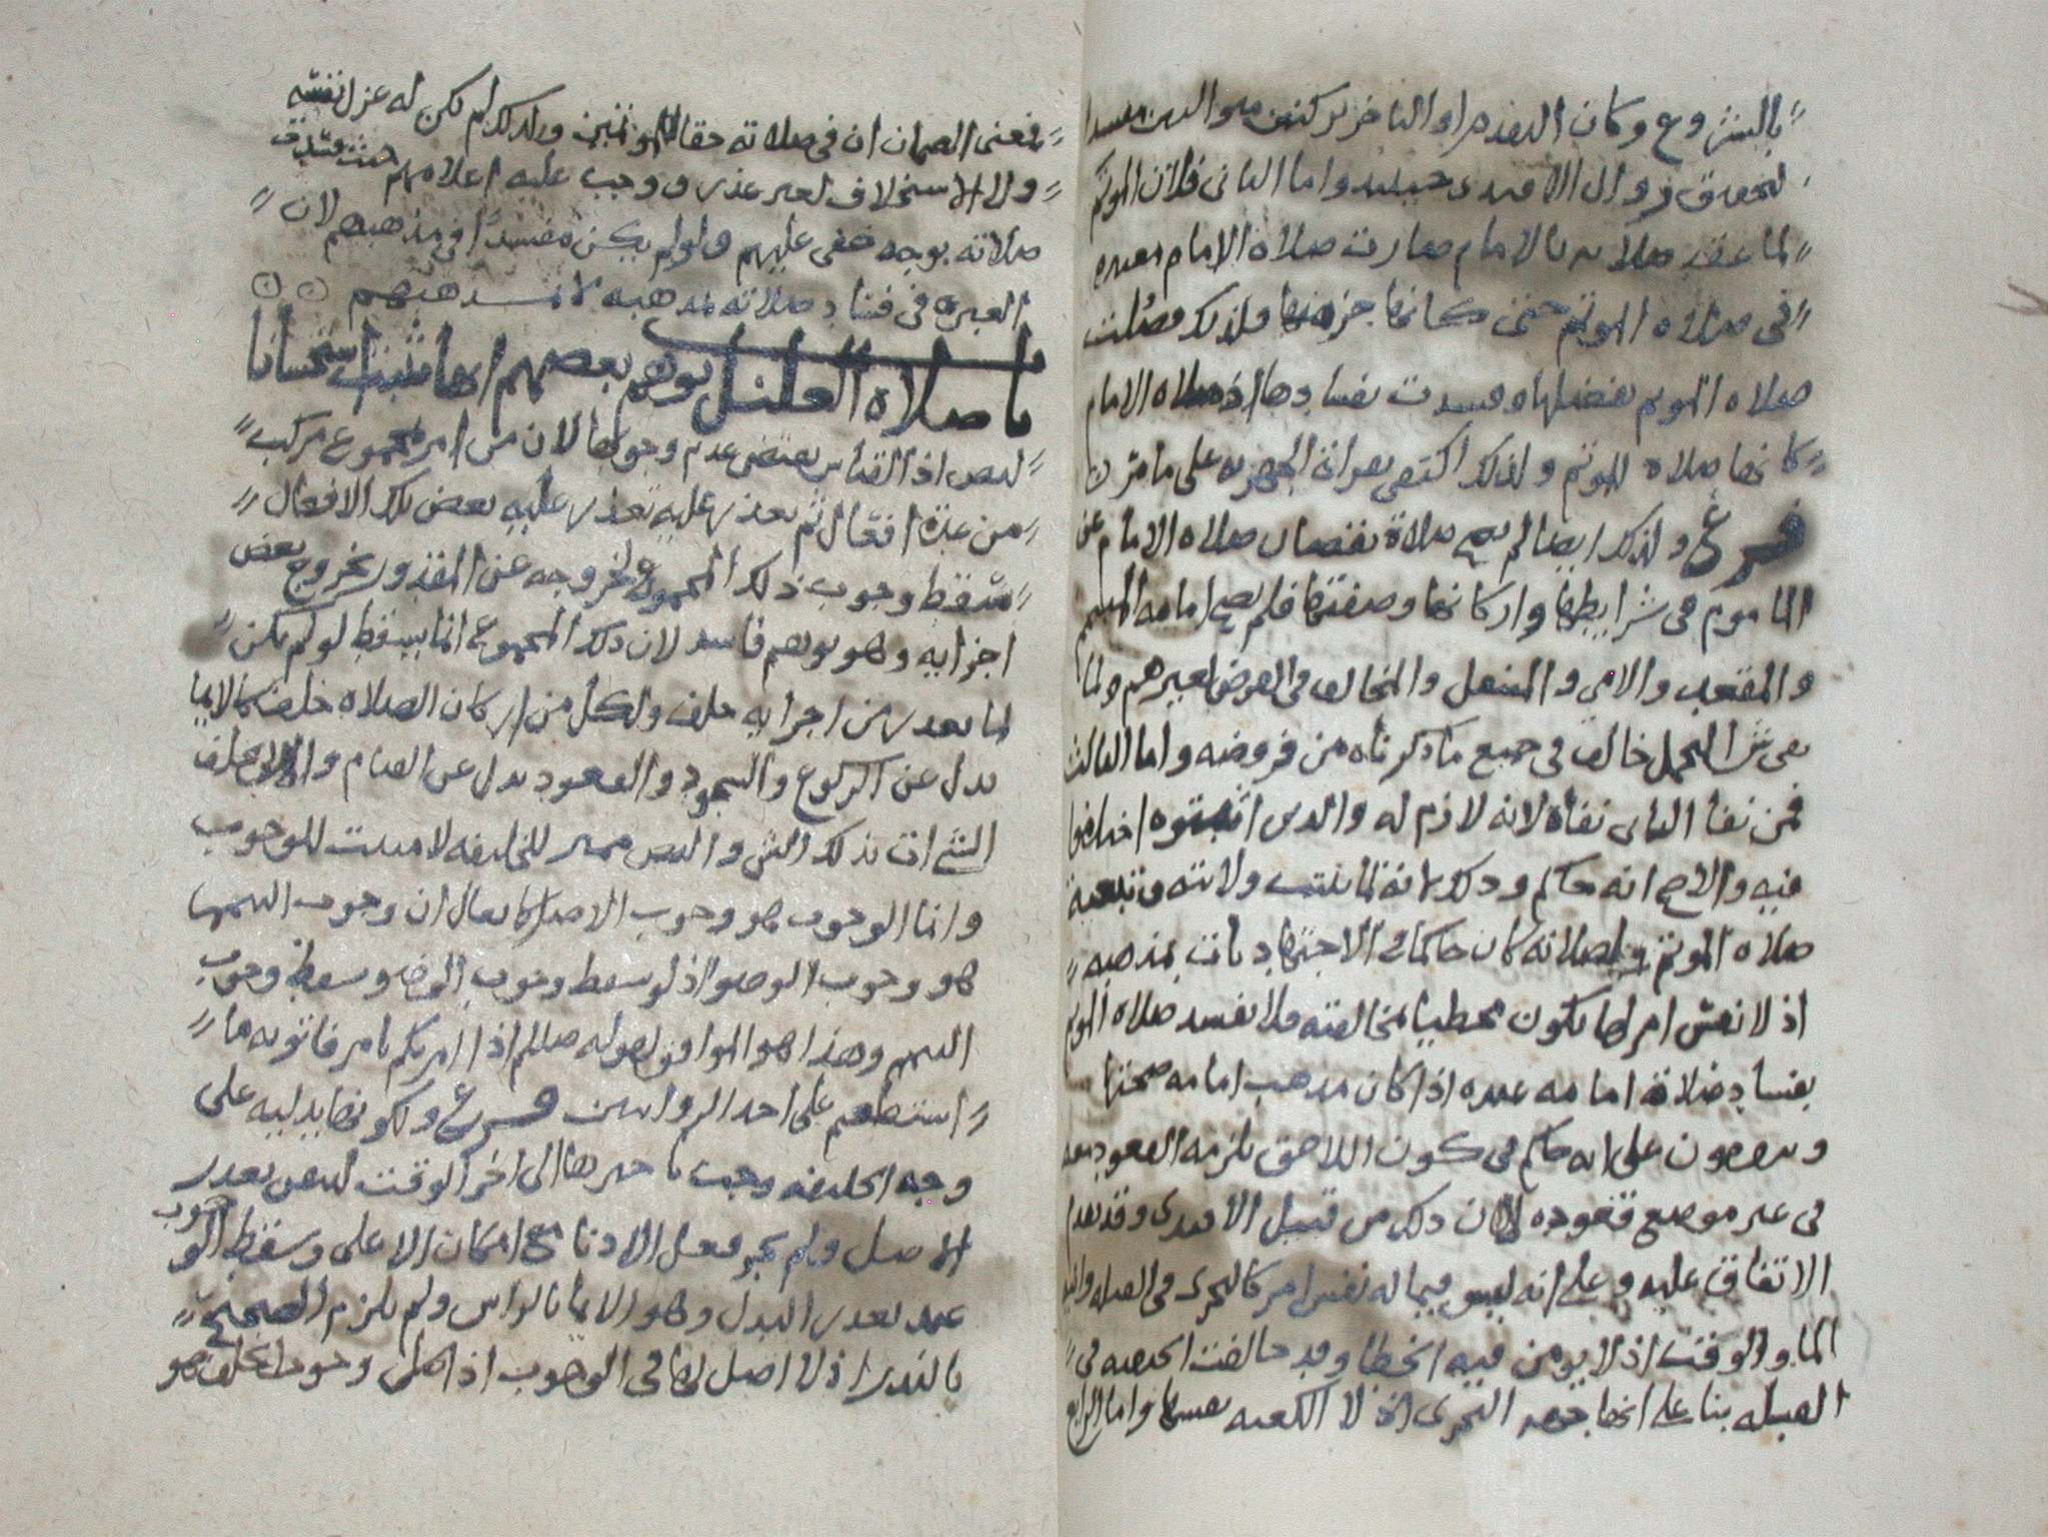 بالشروع وكان التقدم او التاخر بركنين متواليين مفسدا
لتحقق زوال الاقتدى حينئذ واما الثاني فلان الموتم
لما عقد صلاته بالامام صارت صلاة الامام معتبره
في صلاه الموتم حتى كانها جزء منها فلذلك فضلت
صلاه الموتم بفضلها وفسدت بفسادها اذ صلاه الامام
كانها صلاه للموتم ولذلك اكتفي بقراته الجهريه على ما مر
فرع ولذلك ايضا لم تصح صلاة بنقصان صلاه الامام عن
الماموم في شرايطها واركانها وصفتها فلم تصح امامه المتيمم
والمقعد والامي والمتنفل والمخالف في الفرض لغيرهم ولنا
في شرح المجمل خالف في جميع ما ذكرناه من فروضه واما الثالث
فمن نفا الثاني نفاه لانه لازم له والذين اثبتوه اختلفوا
فيه والاصح انه حاكم وذلك لانه لما ثبتت ولايته وتبعية
صلاه الموتم لصلاته كان حاكما في الاجتهاديات بمذهبه
اذ لا نفس امر لها يكون مخطيا بمخالفته فلا تفسد صلاه الموتم
بفساد صلاة امامه عنده اذا كان مذهب امامه صحتها
ويتفقون على انه حاكم في كون اللاحق يلزمه القعود معه
في غير موضع قعوده لان ذلك من قبيل الاقتدى وقد تقدم
الاتفاق عليه وعلى انه ليس فيما له نفس امر كالتحري في القبله
الما والوقت اذ لا يومن فيه الخطا وقد خالفت الحنفيه في
القبله بنا على انها جهه التحري اذ لا الكعبه نفسها واما الرابع
فمعنى الضمان ان في صلاته حقا للموتمين ولذلك لم يكن له عزل نفسه
ولا الاستخلاف لغير عذر ووجب عليه اعلامهم حيث فسدت
صلاته بوجه خفي عليهم ولو لم يكن مفسدا في مذهبهم لان
العبره في فساد صلاته بمذهبه لا بمذهبهم
باب صلاه العليل توهم بعضهم انها تثبت استحسانا
لنص اذ القياس يقتضي عدم وجوبها لان من امر بمجموع مركب
من عدة افعال ثم تعذر عليه تعذر عليه بعض تلك الافعال
سقط وجوب ذلك المجموع لخروجه عن المقدور بخروج بعض
اجزايه وهو توهم فاسد لان ذلك المجموع انما يسقط لو لم يكن
لما تعذر من اجزايه خلف ولكل من اركان الصلاه خلف كالايما
بدل عن الركوع والسجود والقعود بدل عن القيام والاتي بخلف
الشي ات بذلك الشي والنص مبين للخليفه لا مثبت للوجوب
وانما الوجوب هو وجوب الاصل كما يقال ان وجوب التيمم
هو وجوب الوضو اذ لو سقط وجوب الوضو سقط وجوب
التيمم وهذا هو الموافق لقوله صللم اذا امرتكم بامر فاتو به ما
استطعتم على احد الروايتين فرع ولكونها بدليه على
وجه الخليفه وجب تاخيرها الى اخر الوقت ليتعين تعذر
الاصل ولم يجز فعل الادنا مع امكان الاعلى وسقط الوجوب
عند تعذر البدل وهو الايما بالراس ولم يلزم الصحيح
بالنذر اذ لا اصل لها في الوجوب اذ اصل وجوب الخلف هو